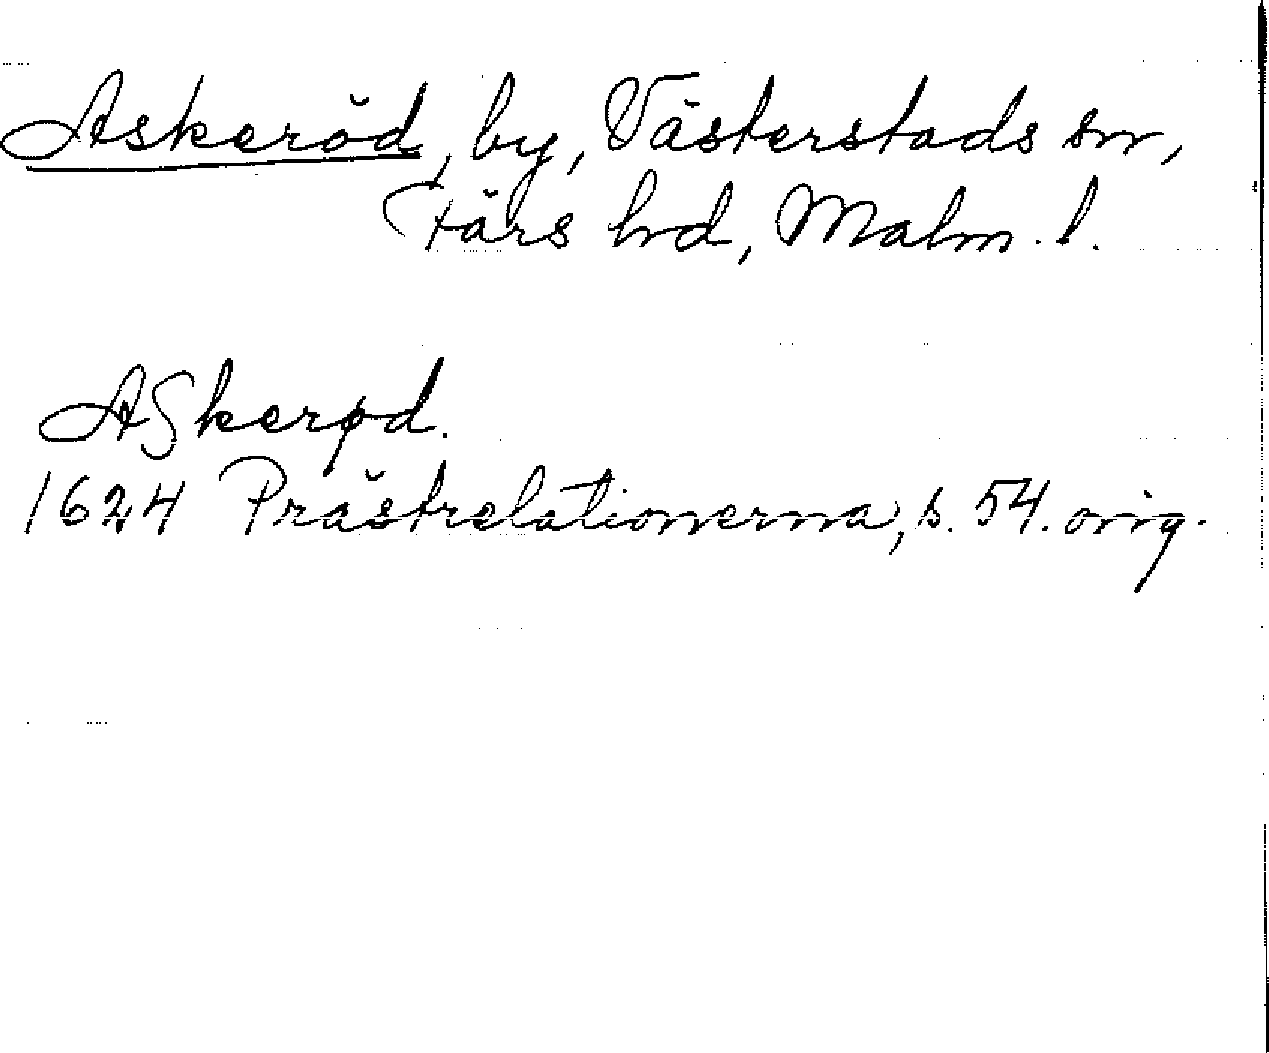 Askeröd, by, Västerstads sn,
Färs hrd, Malm. l.
ASkerød.
1624 Prästrelationerna, s. 54. orig.